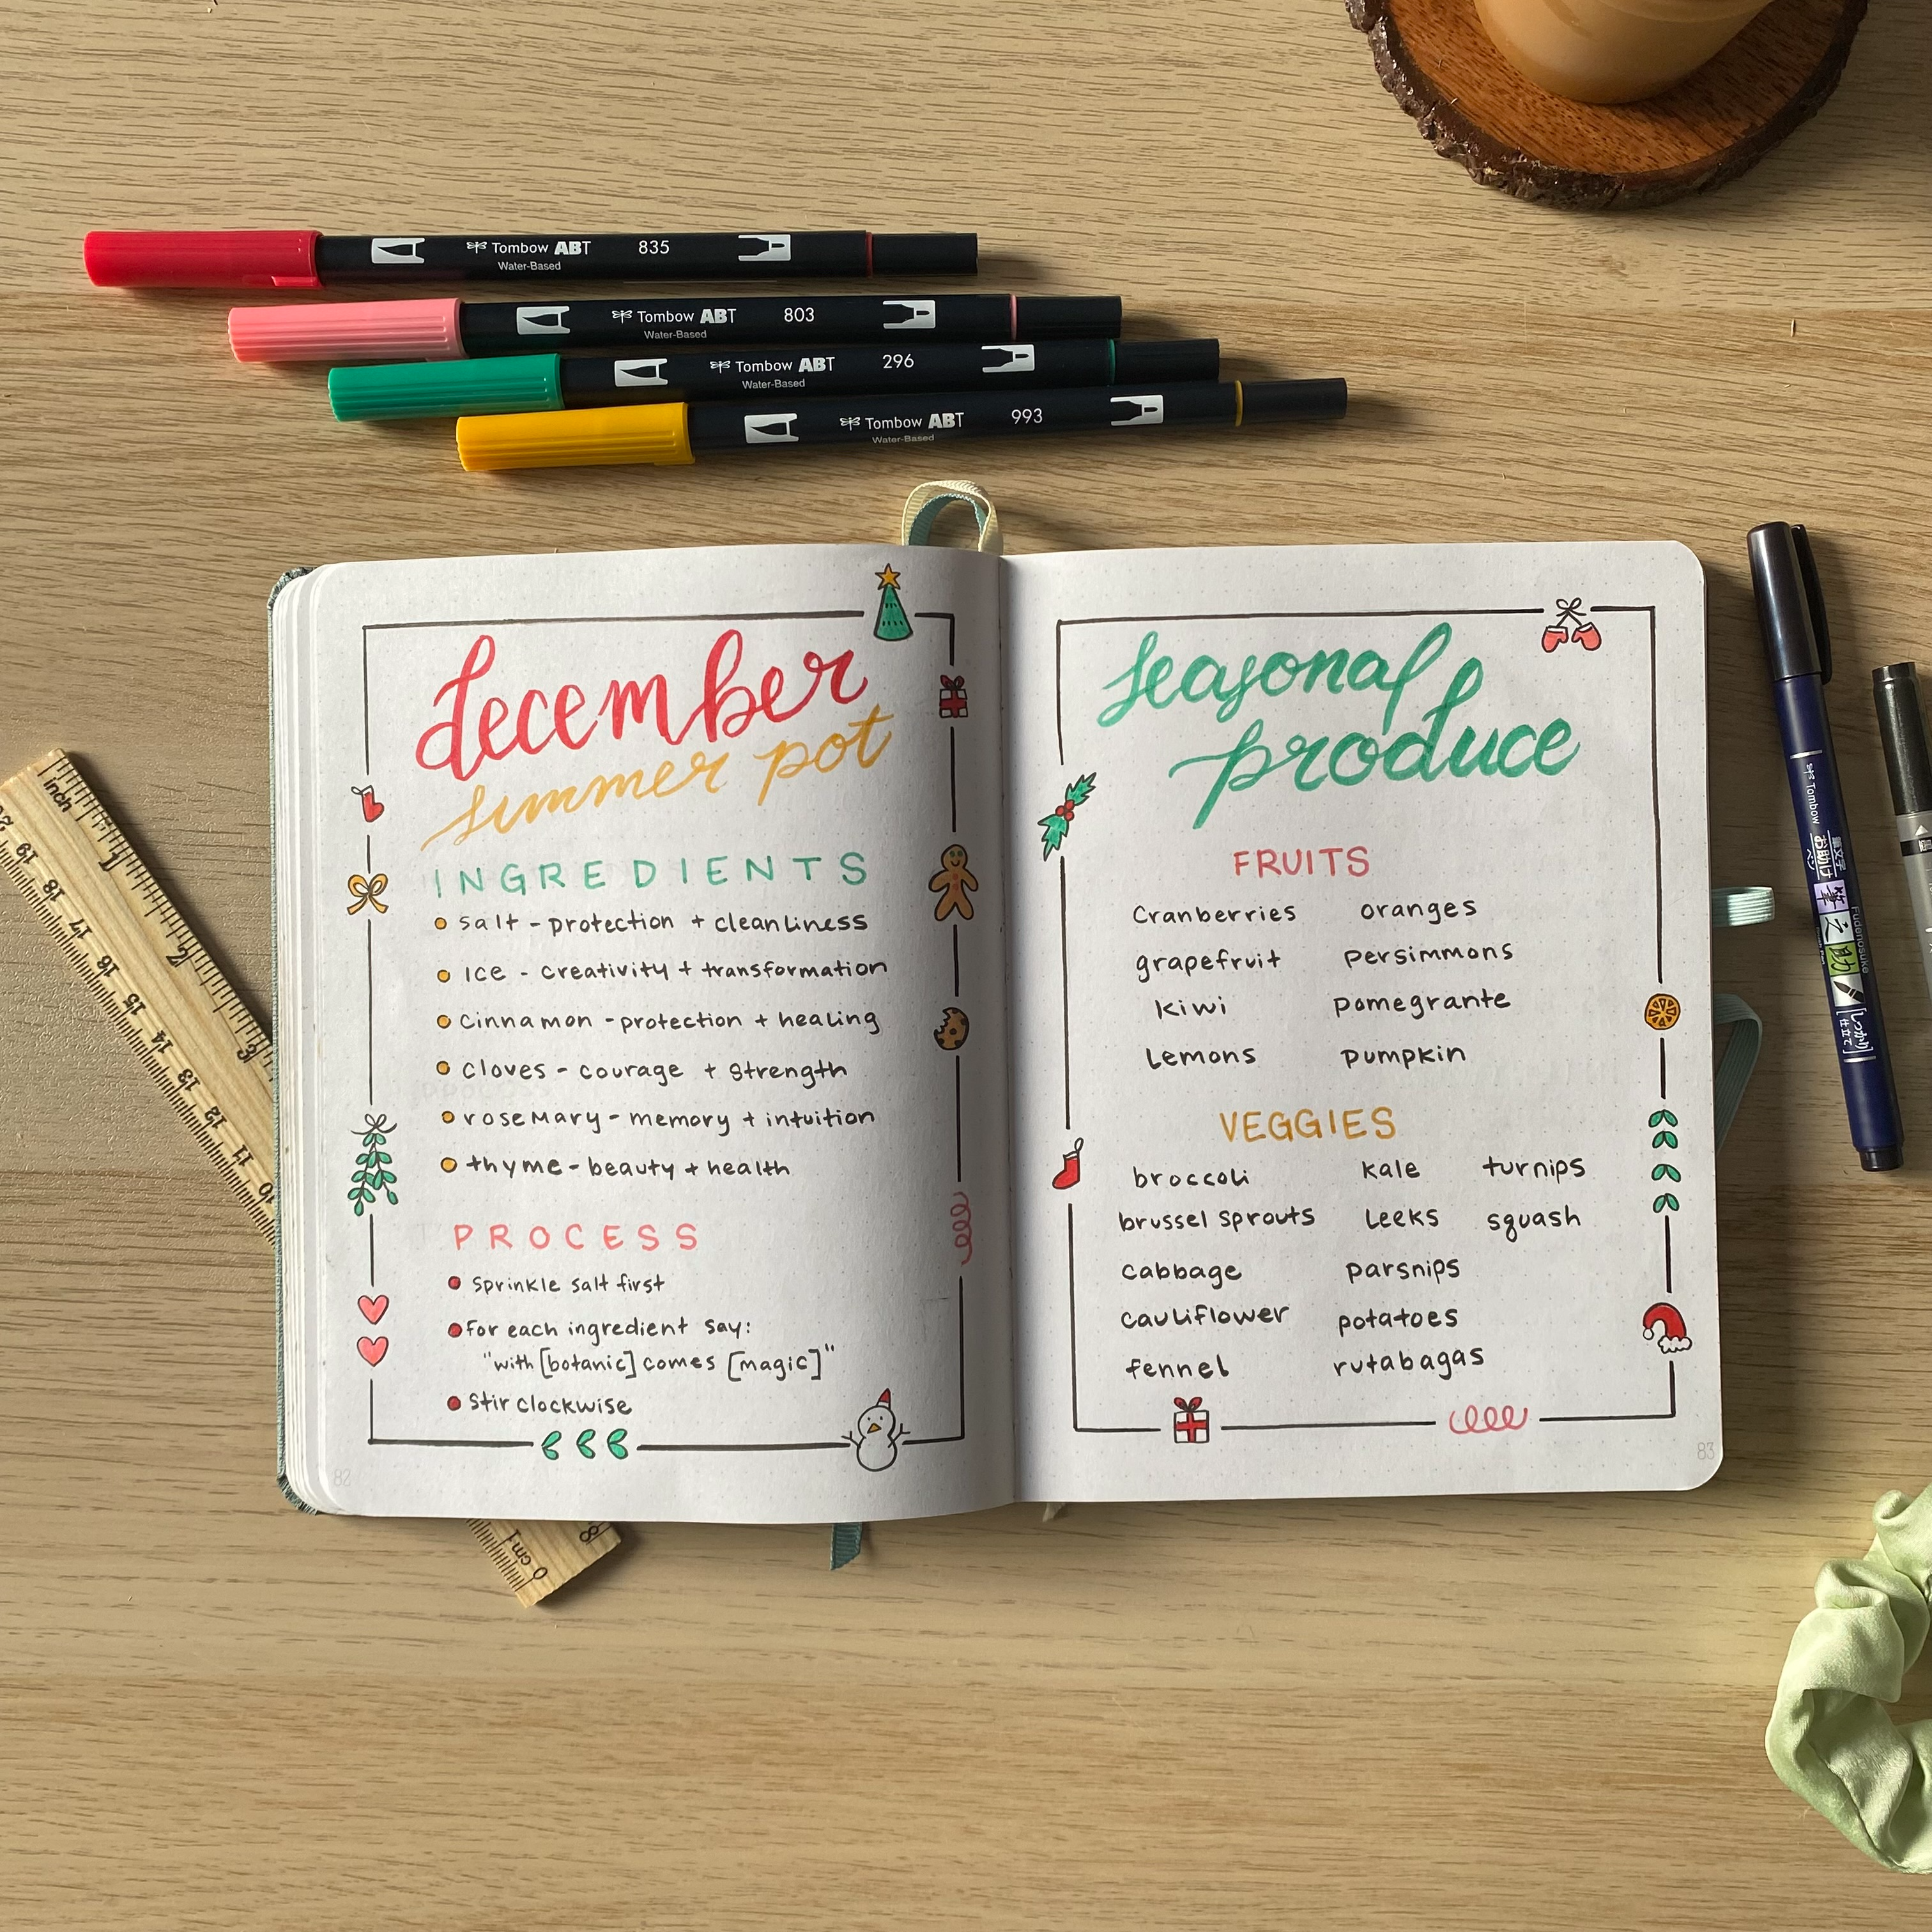 Tombow ABT 835
Water-Based
Tombow ABT 803
Water-Based
Tombow ABT 296
Water-Based
Tombow ABT 993
Water-Based
december
simmer pot
INGREDIENTS
salt - protection + cleanliness
Ice - creativity + transformation
cinnamon - protection + healing
cloves - courage + strength
rosemary - memory + intuition
thyme - beauty + health
PROCESS
sprinkle salt first
for each ingredient say:
"with [botanic] comes [magic]"
stir clockwise
82
seasonal
produce
FRUITS
Cranberries oranges
grapefruit persimmons
kiwi pomegrante
Lemons pumpkin
VEGGIES
broccoli kale turnips
brussel sprouts Leeks squash
cabbage parsnips
cauliflower potatoes
fennel rutabagas
83
inch
1
2
3
19
18
17
16
15
14
13
12
11
10
8
0 cm 1
Tombow
Fudenosuke